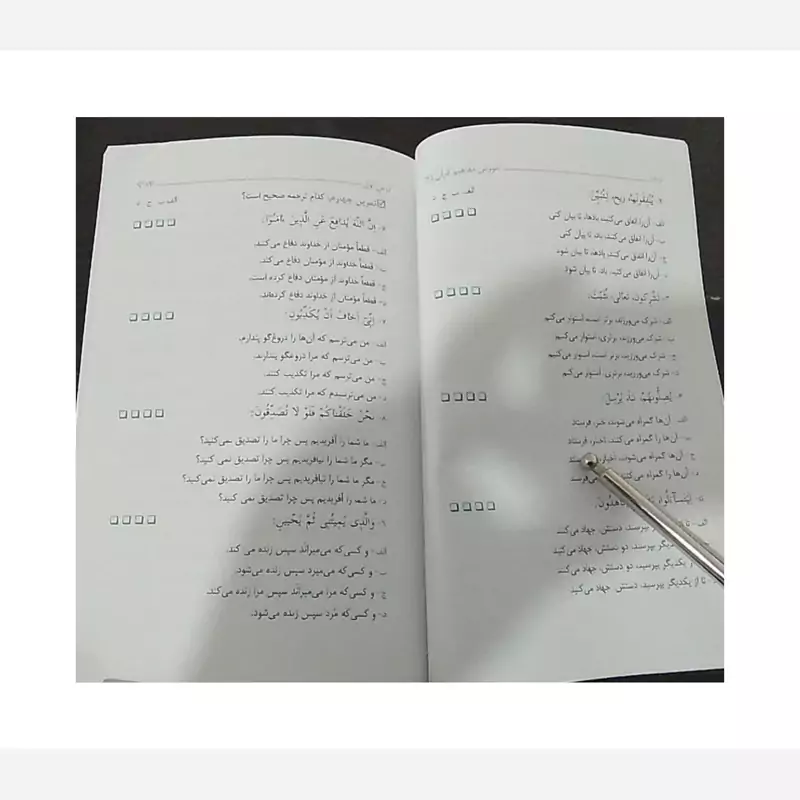 ۲- یُنْفِقُونَهُ، ریح، لِتُبَیِّنَ
الف ب ج د
الف- آن‌را انفاق می‌کنید، بادها، تا بیان کنی
ب- آن‌را انفاق می‌کنند، باد، تا بیان کنی
ج- آن‌را انفاق می‌کنند، بادها، تا بیان شود
د- آن‌را انفاق می‌کنید، باد، تا بیان شود
۳- تُشْرِکُون، تَعالی، ثُبِّتَ:
الف- شرک می‌ورزند، برتر است، استوار می‌کنم
ب- شرک می‌ورزند، برتری، استوار می‌کنم
ج- شرک می‌ورزید، برتر است، استوار می‌کنیم
د- شرک می‌ورزید، برتری، استوار می‌کنیم
الف- آن‌ها گمراه می‌شوند، خبر، فرستاد
ب- آن‌ها را گمراه می‌کنند، اخبار، فرستاد
ج- آن‌ها گمراه می‌شوند، اخبار،
د- آن‌ها را گمراه می‌کنند، می‌فرستد
الف- تا از یکدیگر بپرسند، دستش، جهاد می‌کنند
ب- تا از یکدیگر بپرسند، دو دستش، جهاد می‌کنید
یکدیگر بپرسید، دو دستش، جهاد می‌کنند
د- تا از یکدیگر بپرسید، دستش، جهاد می‌کنید
تمرین چهارم: کدام ترجمه صحیح است؟
الف ب ج د
إِنَّ اللَّهَ یُدافِعُ عَنِ الَّذِینَ ءامَنُوا:
الف- قطعاً مؤمنان از خداوند دفاع می‌کنند.
ب- قطعاً خداوند از مؤمنان دفاع می‌کند.
ج- قطعاً خداوند از مؤمنان دفاع کرده است.
د- قطعاً مؤمنان از خداوند دفاع کرده‌اند.
إِنِّی أَخافُ أَنْ یُکَذِّبُونِ:
الف- من می‌ترسم که آن‌ها را دروغگو پندارم.
ب- من می‌ترسم که مرا دروغگو پندارند.
ج- من می‌ترسم که مرا تکذیب کنند.
د- من می‌ترسیدم که مرا تکذیب کنند.
نَحْنُ خَلَقْناکُمْ فَلَوْ لا تُصَدِّقُونَ:
الف- ما شما را آفریدیم پس چرا ما را تصدیق نمی‌کنید؟
ب- مگر ما شما را نیافریدیم پس چرا تصدیق نمی‌کنید؟
ج- مگر ما شما را نیافریدیم پس چرا ما را تصدیق نمی‌کنند؟
د- ما شما را آفریدیم پس چرا تصدیق نمی کنید؟
وَالَّذِی یُمِیتُنِی ثُمَّ یُحْیِینِ:
الف- و کسی‌که می‌میراند سپس زنده می کند.
ب- و کسی‌که می‌میرد سپس زنده می‌شود.
ج- و کسی‌که مرا می‌میراند سپس مرا زنده می‌کند.
د- و کسی‌که مُرد سپس زنده می‌شود.